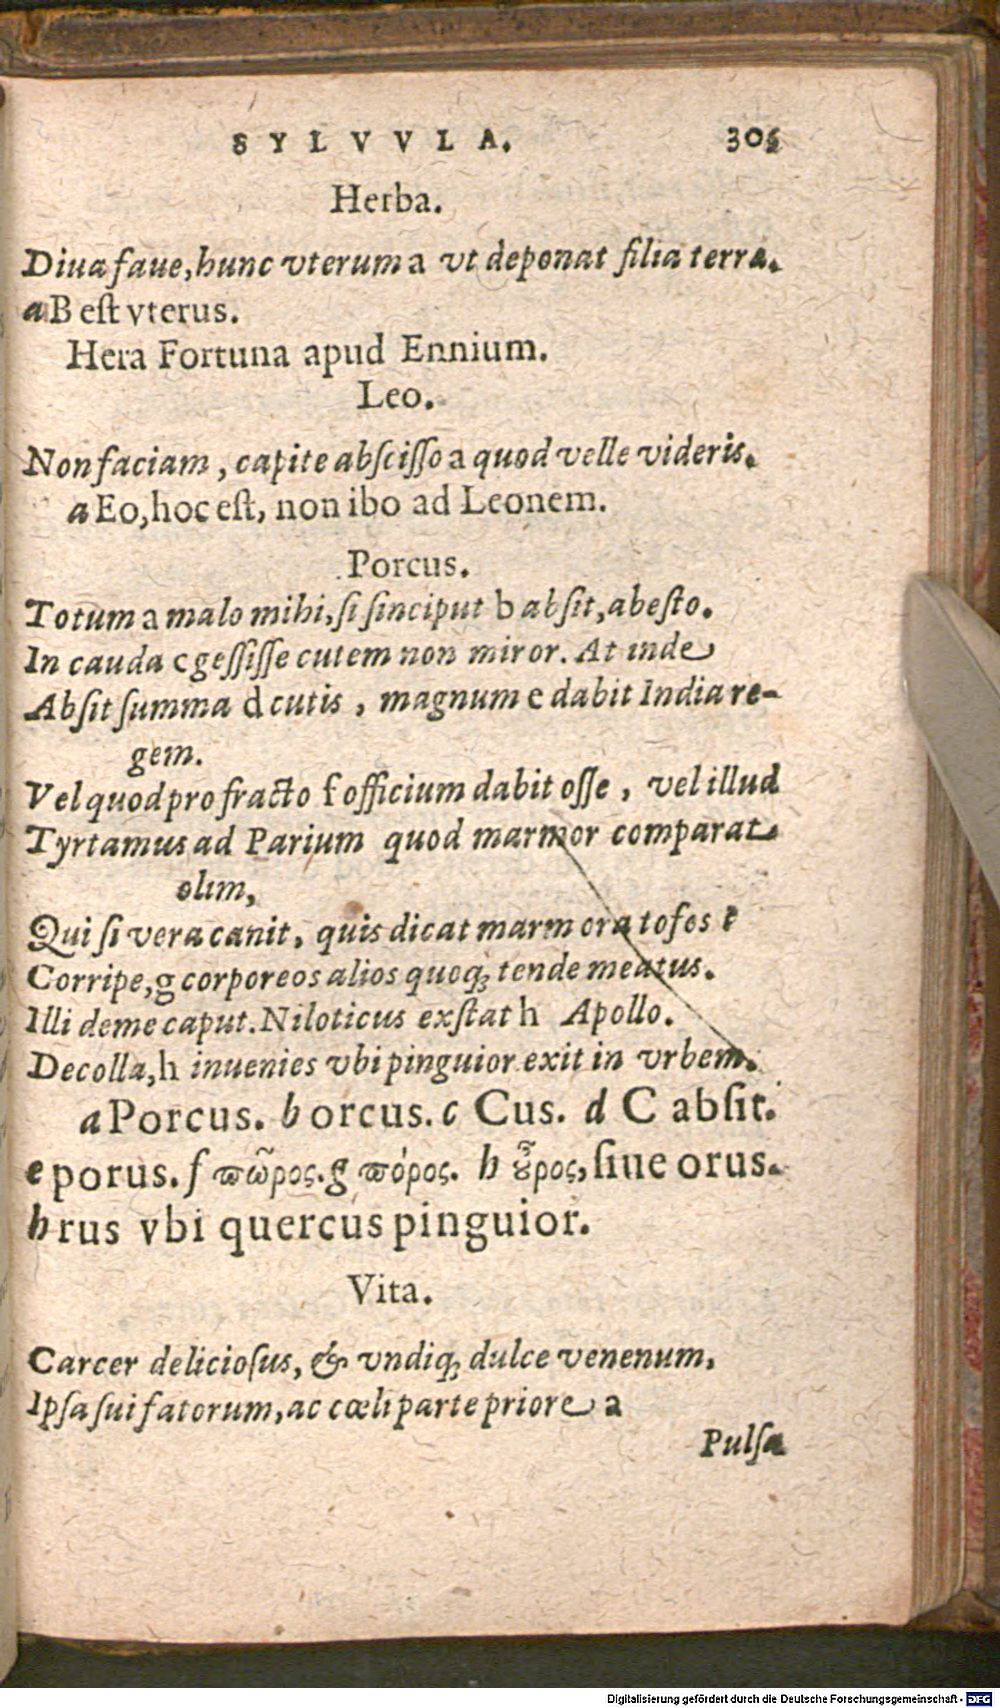 SYLVVLA. 305
Herba.
Diua faue, hunc vterum a vt deponat filia terra.
a B est vterus.
Hera Fortuna apud Ennium.
Leo.
Non faciam, capite abscisso a quod velle videris.
a Eo, hoc est, non ibo ad Leonem.
Porcus.
Totum a malo mihi, si sinciput b absit, abesto.
In cauda c gessisse cutem non miror. At inde
Absit summa d cutis, magnum e dabit India re-
gem.
Vel quod pro fracto f officium dabit osse, vel illud
Tyrtamus ad Parium quod marmor comparat
olim,
Qui si vera canit, quis dicat marmora tofos?
Corripe, g corporeos alios quoq; tende meatus.
Illi deme caput. Niloticus exstat h Apollo.
Decolla, h inuenies vbi pinguior exit in vrbem.
a Porcus. b orcus. c Cus. d C absit.
e porus. f πῶρος. g πόρος. h ὦρος, siue orus.
h rus vbi quercus pinguior.
Vita.
Carcer deliciosus, & vndiq; dulce venenum,
Ipsa sui fatorum, ac cœli parte priore a
Pulsa
Digitalisierung gefördert durch die Deutsche Forschungsgemeinschaft - DFG